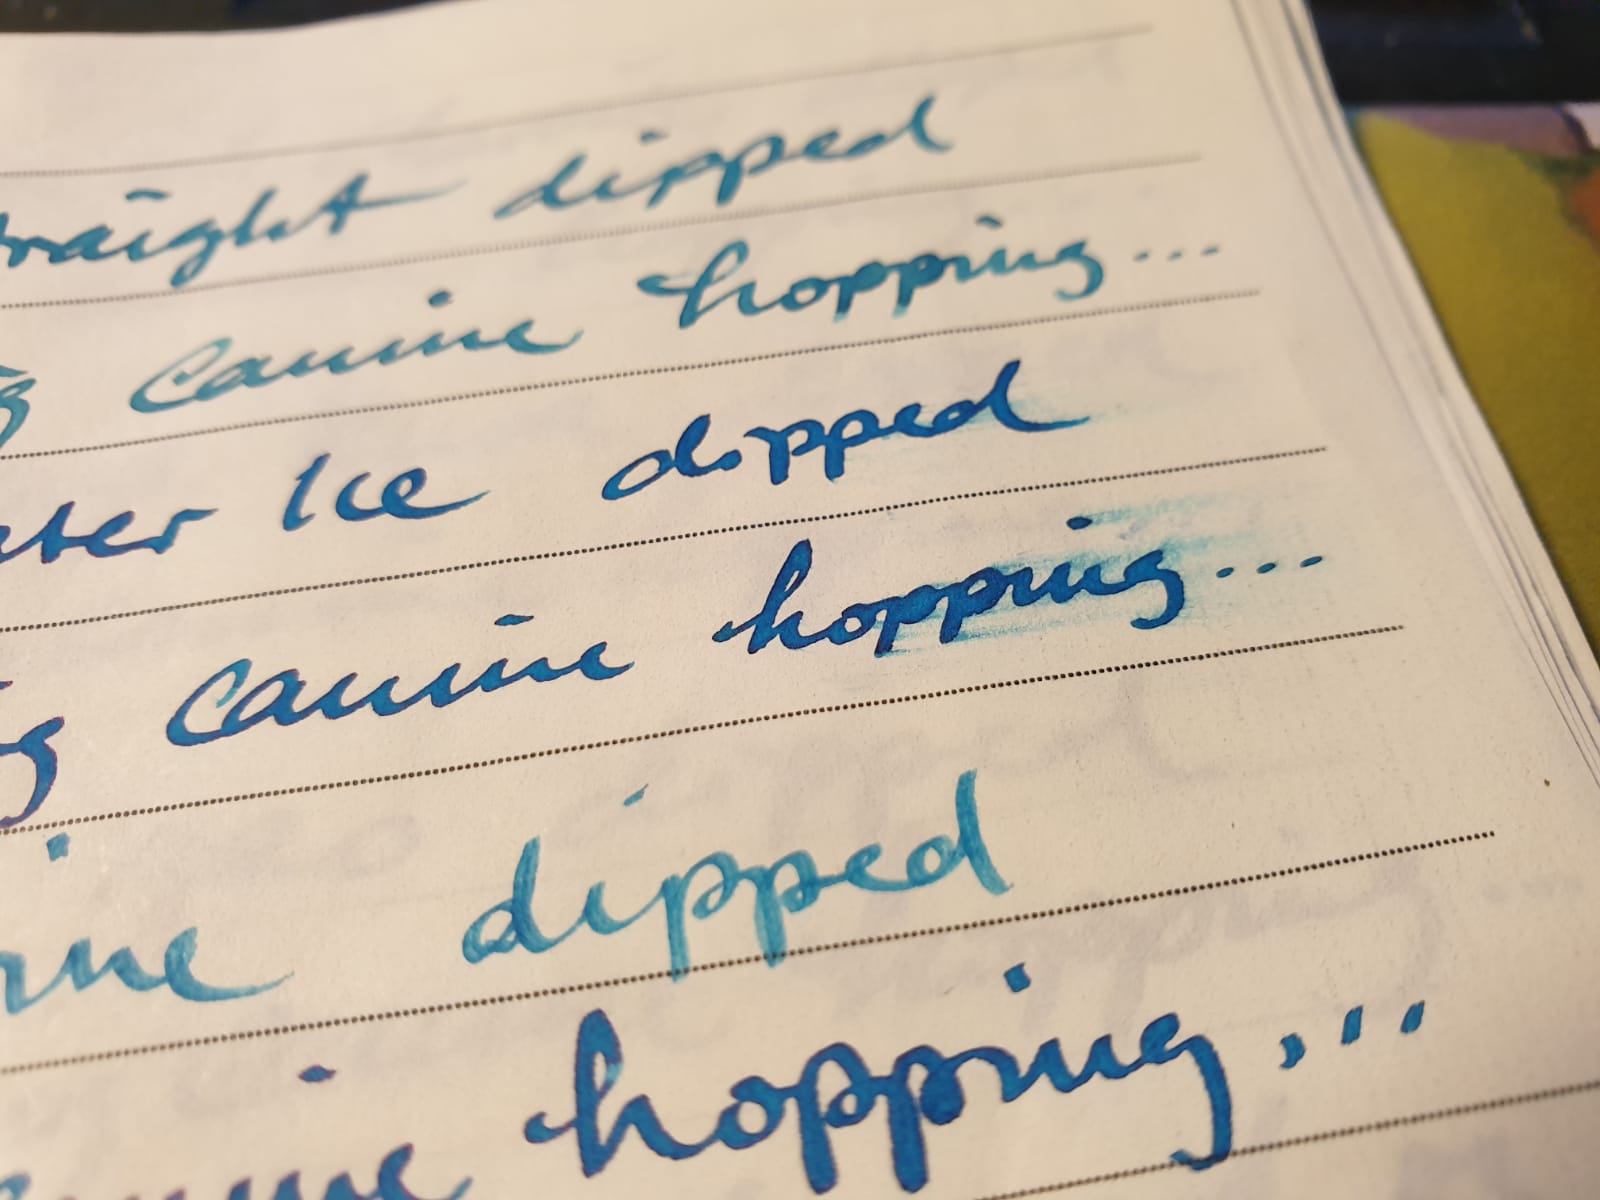 raight dipped
g canine hopping...
ater Ice dipped
g canine hopping...
ine dipped
canine hopping...